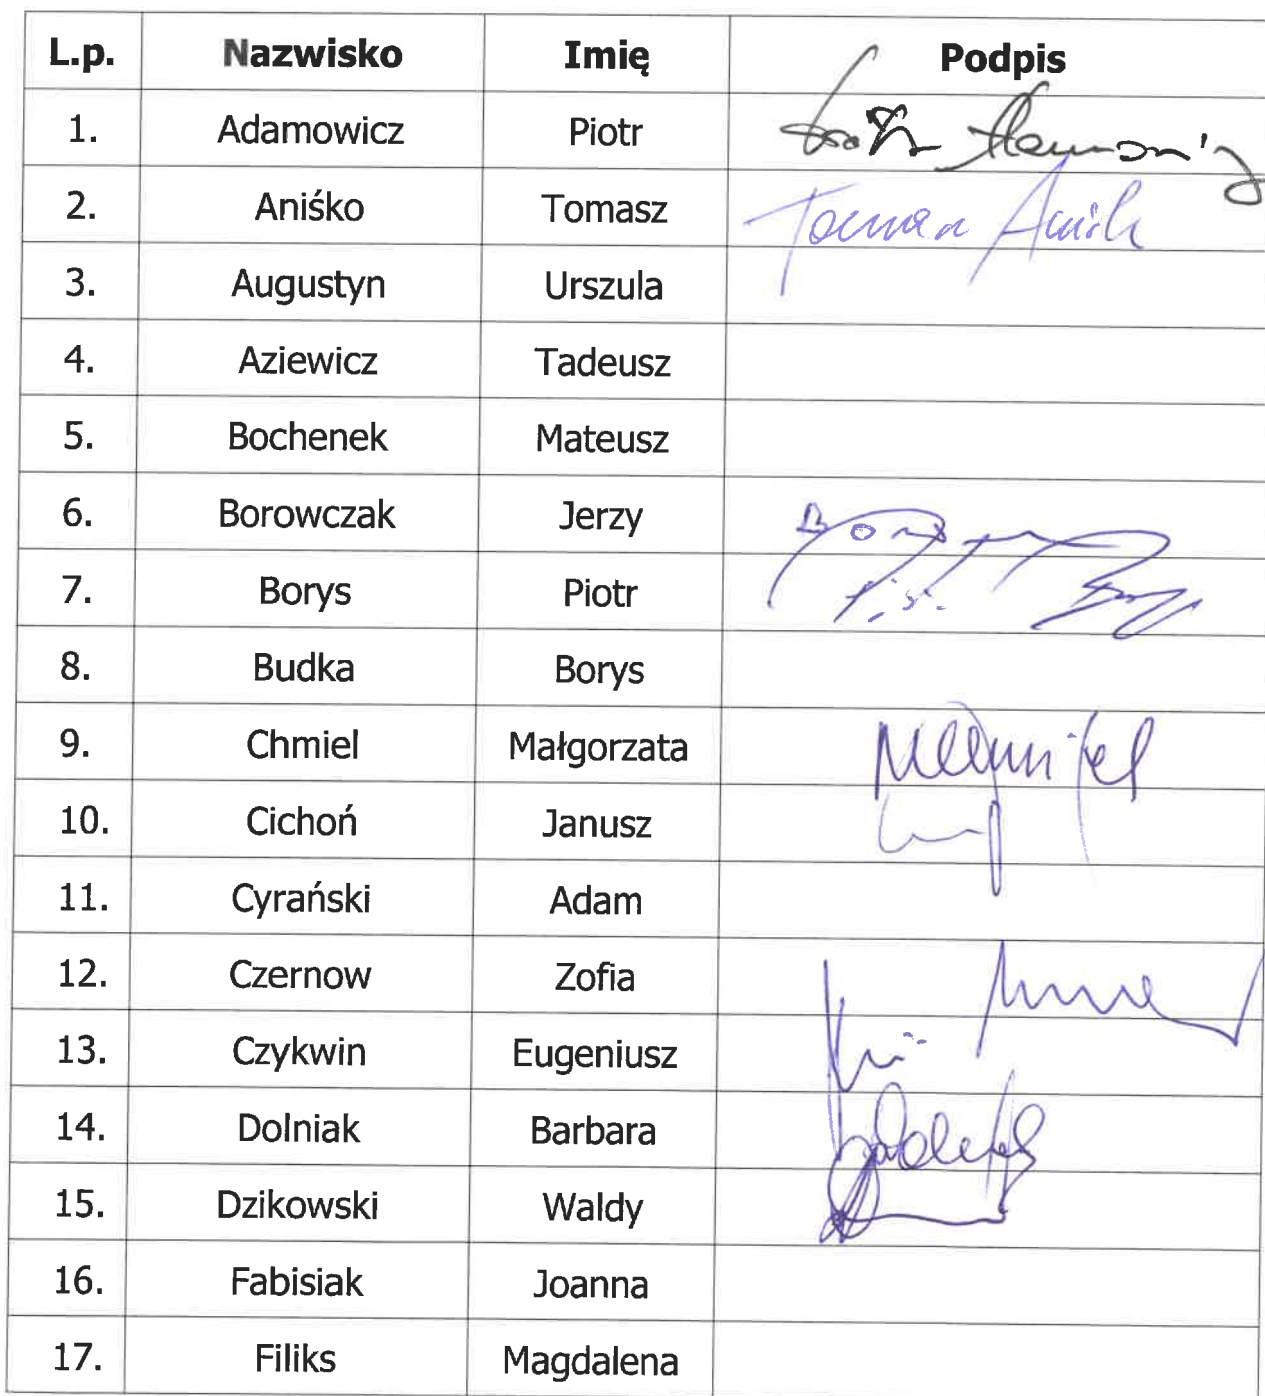 L.p. Nazwisko Imię Podpis
1. Adamowicz Piotr
2. Aniśko Tomasz Tomasz Aniśko
3. Augustyn Urszula
4. Aziewicz Tadeusz
5. Bochenek Mateusz
6. Borowczak Jerzy
7. Borys Piotr
8. Budka Borys
9. Chmiel Małgorzata MChmiel
10. Cichoń Janusz
11. Cyrański Adam
12. Czernow Zofia
13. Czykwin Eugeniusz
14. Dolniak Barbara
15. Dzikowski Waldy
16. Fabisiak Joanna
17. Filiks Magdalena